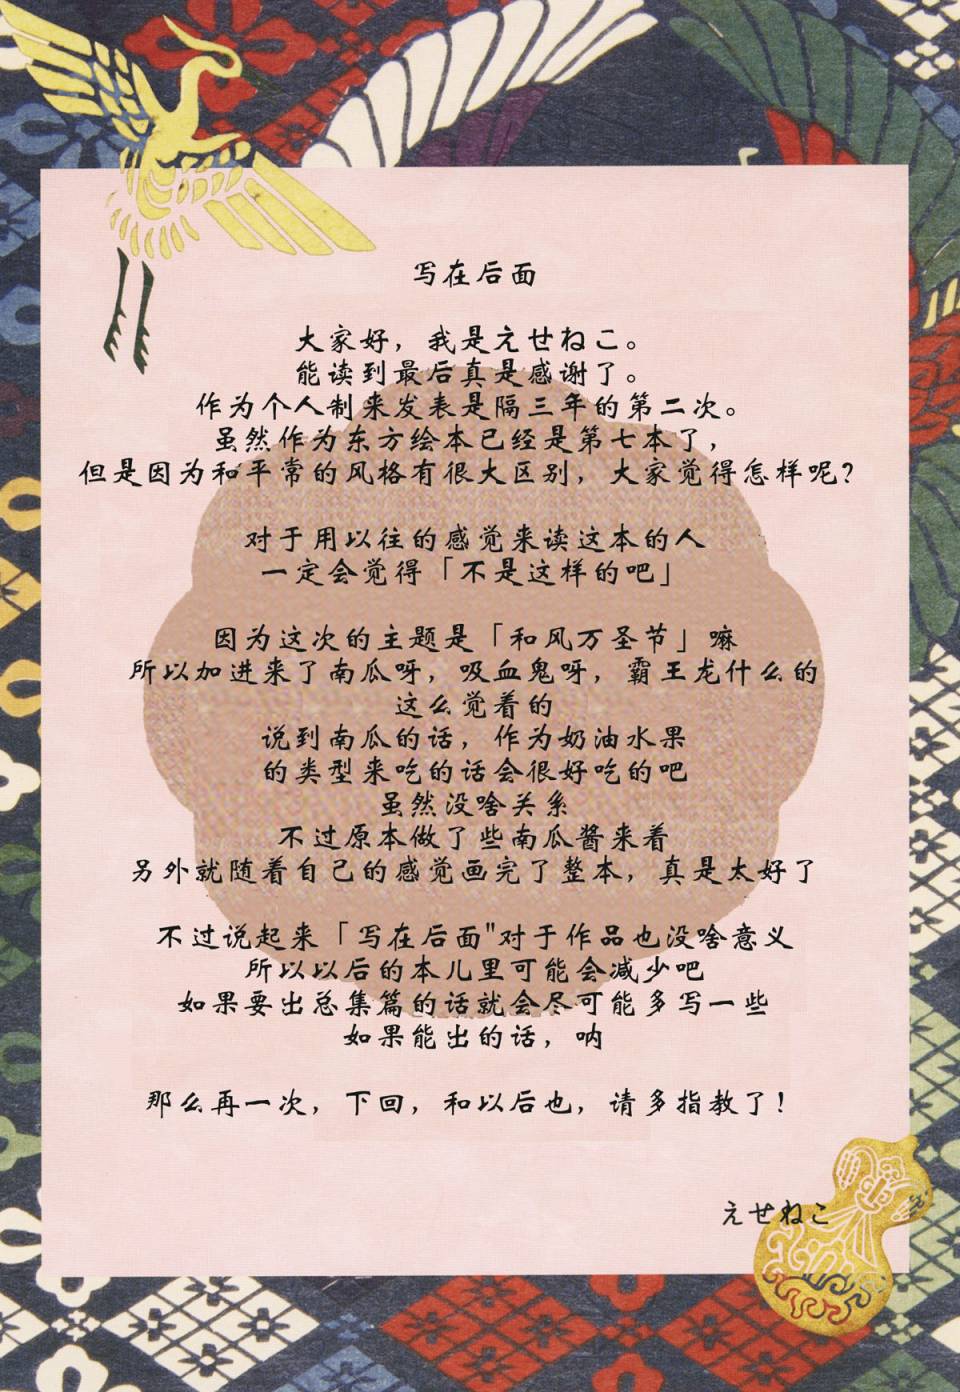 写在后面
大家好，我是えせねこ。
能读到最后真是感谢了。
作为个人制来发表是隔三年的第二次。
虽然作为东方绘本已经是第七本了，
但是因为和平常的风格有很大区别，大家觉得怎样呢？
对于用以往的感觉来读这本的人
一定会觉得「不是这样的吧」
因为这次的主题是「和风万圣节」嘛
所以加进来了南瓜呀，吸血鬼呀，霸王龙什么的
这么觉着的
说到南瓜的话，作为奶油水果
的类型来吃的话会很好吃的吧
虽然没啥关系
不过原本做了些南瓜酱来着
另外就随着自己的感觉画完了整本，真是太好了
不过说起来「写在后面"对于作品也没啥意义
所以以后的本儿里可能会减少吧
如果要出总集篇的话就会尽可能多写一些
如果能出的话，呐
那么再一次，下回，和以后也，请多指教了！
えせねこ